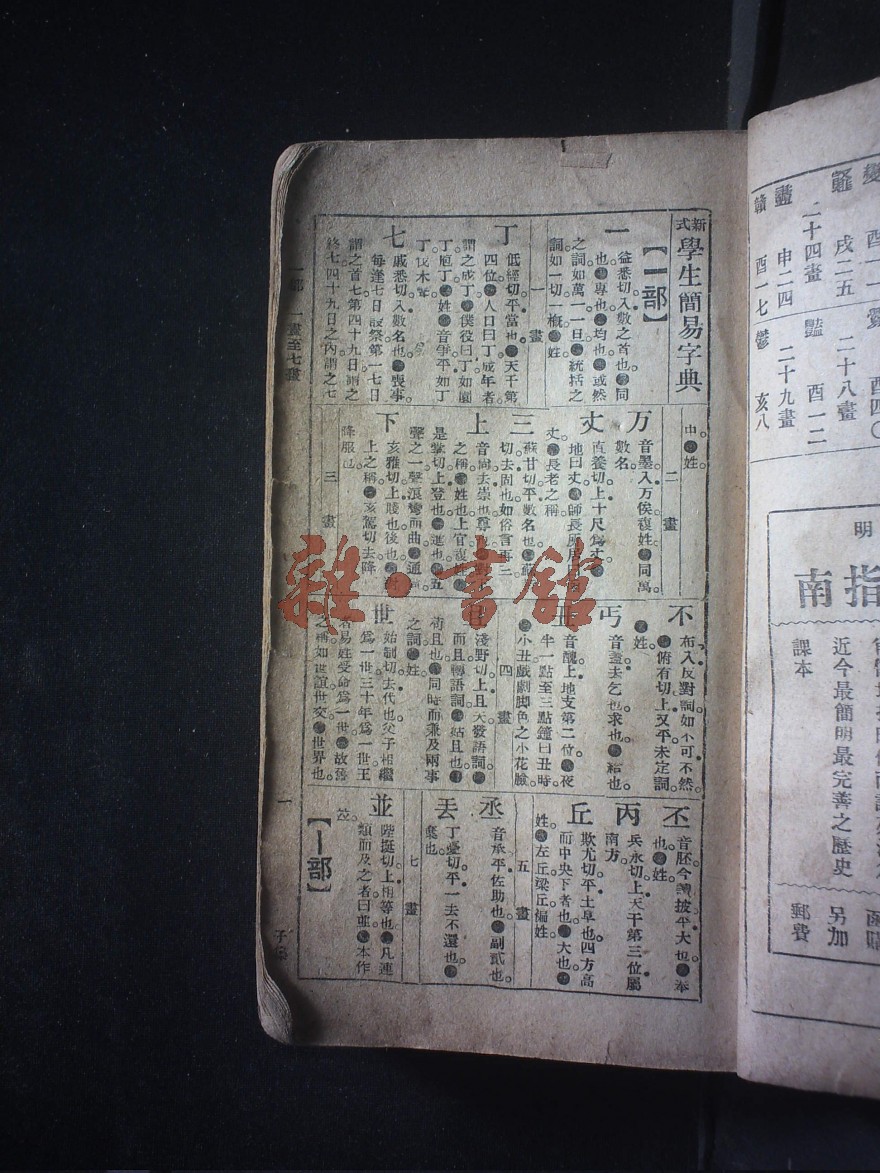 新式學生簡易字典
【一部】
一
益悉切入數之首也●同
也●專也●均也●或然
之詞如萬一一日●統括之
詞如一切一槪●姓
一畫
丁
低經切平當也●天干第
四位●人口曰丁成年者
謂之成丁●僕役曰丁如園
丁庖丁●姓●音爭平如丁
丁伐木
七
戚悉切入數名也●喪事
每逢七日設祭第一七日
謂之首七第四十九日謂之
終七四十九日之內謂之七
中●姓
二畫
万
音墨入万俟複姓●同萬
數名
丈
直養切上十尺爲丈●
地曰丈●師長
丈●長老之稱
三
蘇甘切平數名也●蘇
切去固也如俗言再二
上
音尙去崇也尊也
之稱●姓也上官複
是掌切上登也●進也●五
聲之一聲浪彎而曲●通
下
亥雅切上賤也後也●對
上之稱●亥駕切去降
降服也
三畫
不
布入反對詞如不可不然
●俯有切上又平未定詞
●姓
丐
音蓋去乞也求也●給也
丑
音醜上地支第二位●夜
半一點至三點鐘曰丑時
●小丑戲劇脚色之小花臉
四畫
且
淺野切上且夫發語詞●
而且轉語詞●姑且也●
苟且也●同時而兼及兩事
之詞●姓
世
始制切去代也父子相繼
爲一世三十年爲一世王
者易姓受命爲一世●故舊
之稱如世誼世交●世界也
丕
音胚今讀披平大也●奉
也●姓
丙
兵永切上天干第三位屬
南方
丘
欺尤切平土阜也四方高
而中央下者也●大也●
姓●左丘梁丘複姓
五畫
丞
音承平佐助也●副貳也
丟
丁憂切平一去不還也●
棄也
七畫
並
陛挺切上相等也●凡連
類而及之者曰並●本作
竝
【丨部】
一部 一畫至七畫
一
子
雜·書館
二十四畫
戌二五
豔
酉一二
二十八畫
酉四〇
鹽
申二四
贛
酉一七
二十九畫
鬱
亥八
明
指南
課本
近今最簡明最完善之歷史
另加
郵費